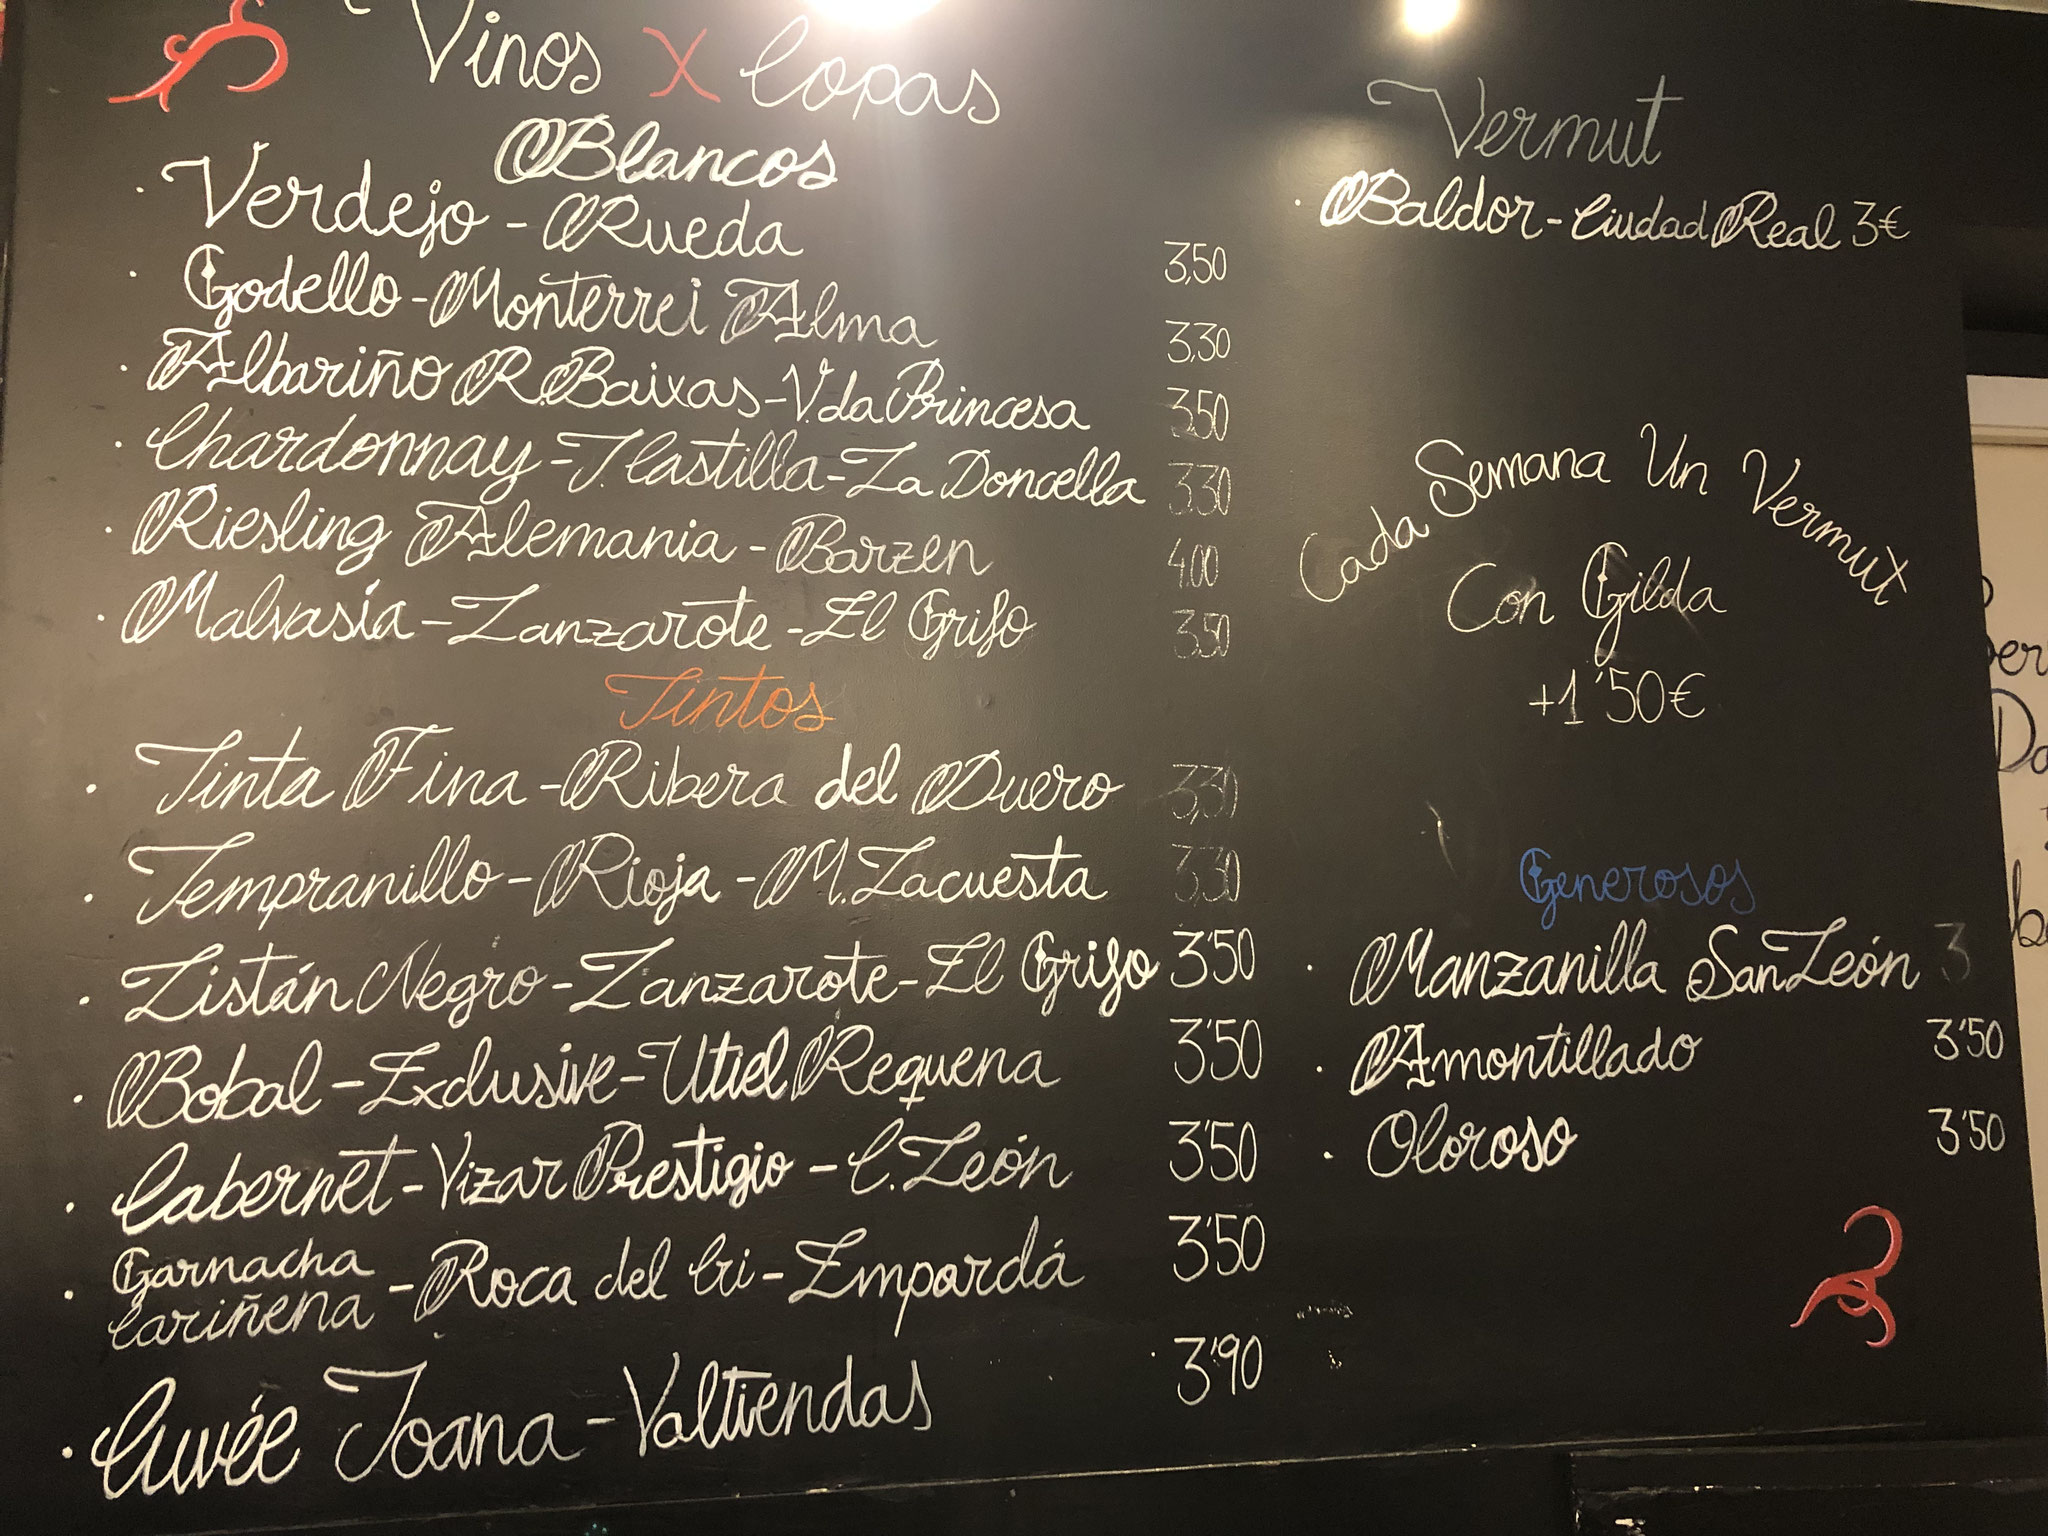 Vinos X Copas
Blancos
· Verdejo - Rueda 3,50
· Godello - Monterrei Alma 3,30
· Albariño R. Baixas - V. da Princesa 3,50
· Chardonnay - T. Castilla - La Doncella 3,30
· Riesling Alemania - Barzen 4,00
· Malvasía - Lanzarote - El Grifo 3,50
Tintos
· Tinta Fina - Ribera del Duero 3,30
· Tempranillo - Rioja - M. Lacuesta 3,30
· Listán Negro - Lanzarote - El Grifo 3'50
· Bobal - Exclusive - Utiel Requena 3'50
· Cabernet - Vizar Prestigio - C. León 3'50
· Garnacha
Cariñena - Roca del Cri - Empordá 3'50
· Cuvée Joana - Valtiendas 3'90
Vermut
· Baldor - Ciudad Real 3€
Cada Semana Un Vermut
Con Gilda
+1'50€
Generosos
· Manzanilla San León 3
· Amontillado 3'50
· Oloroso 3'50